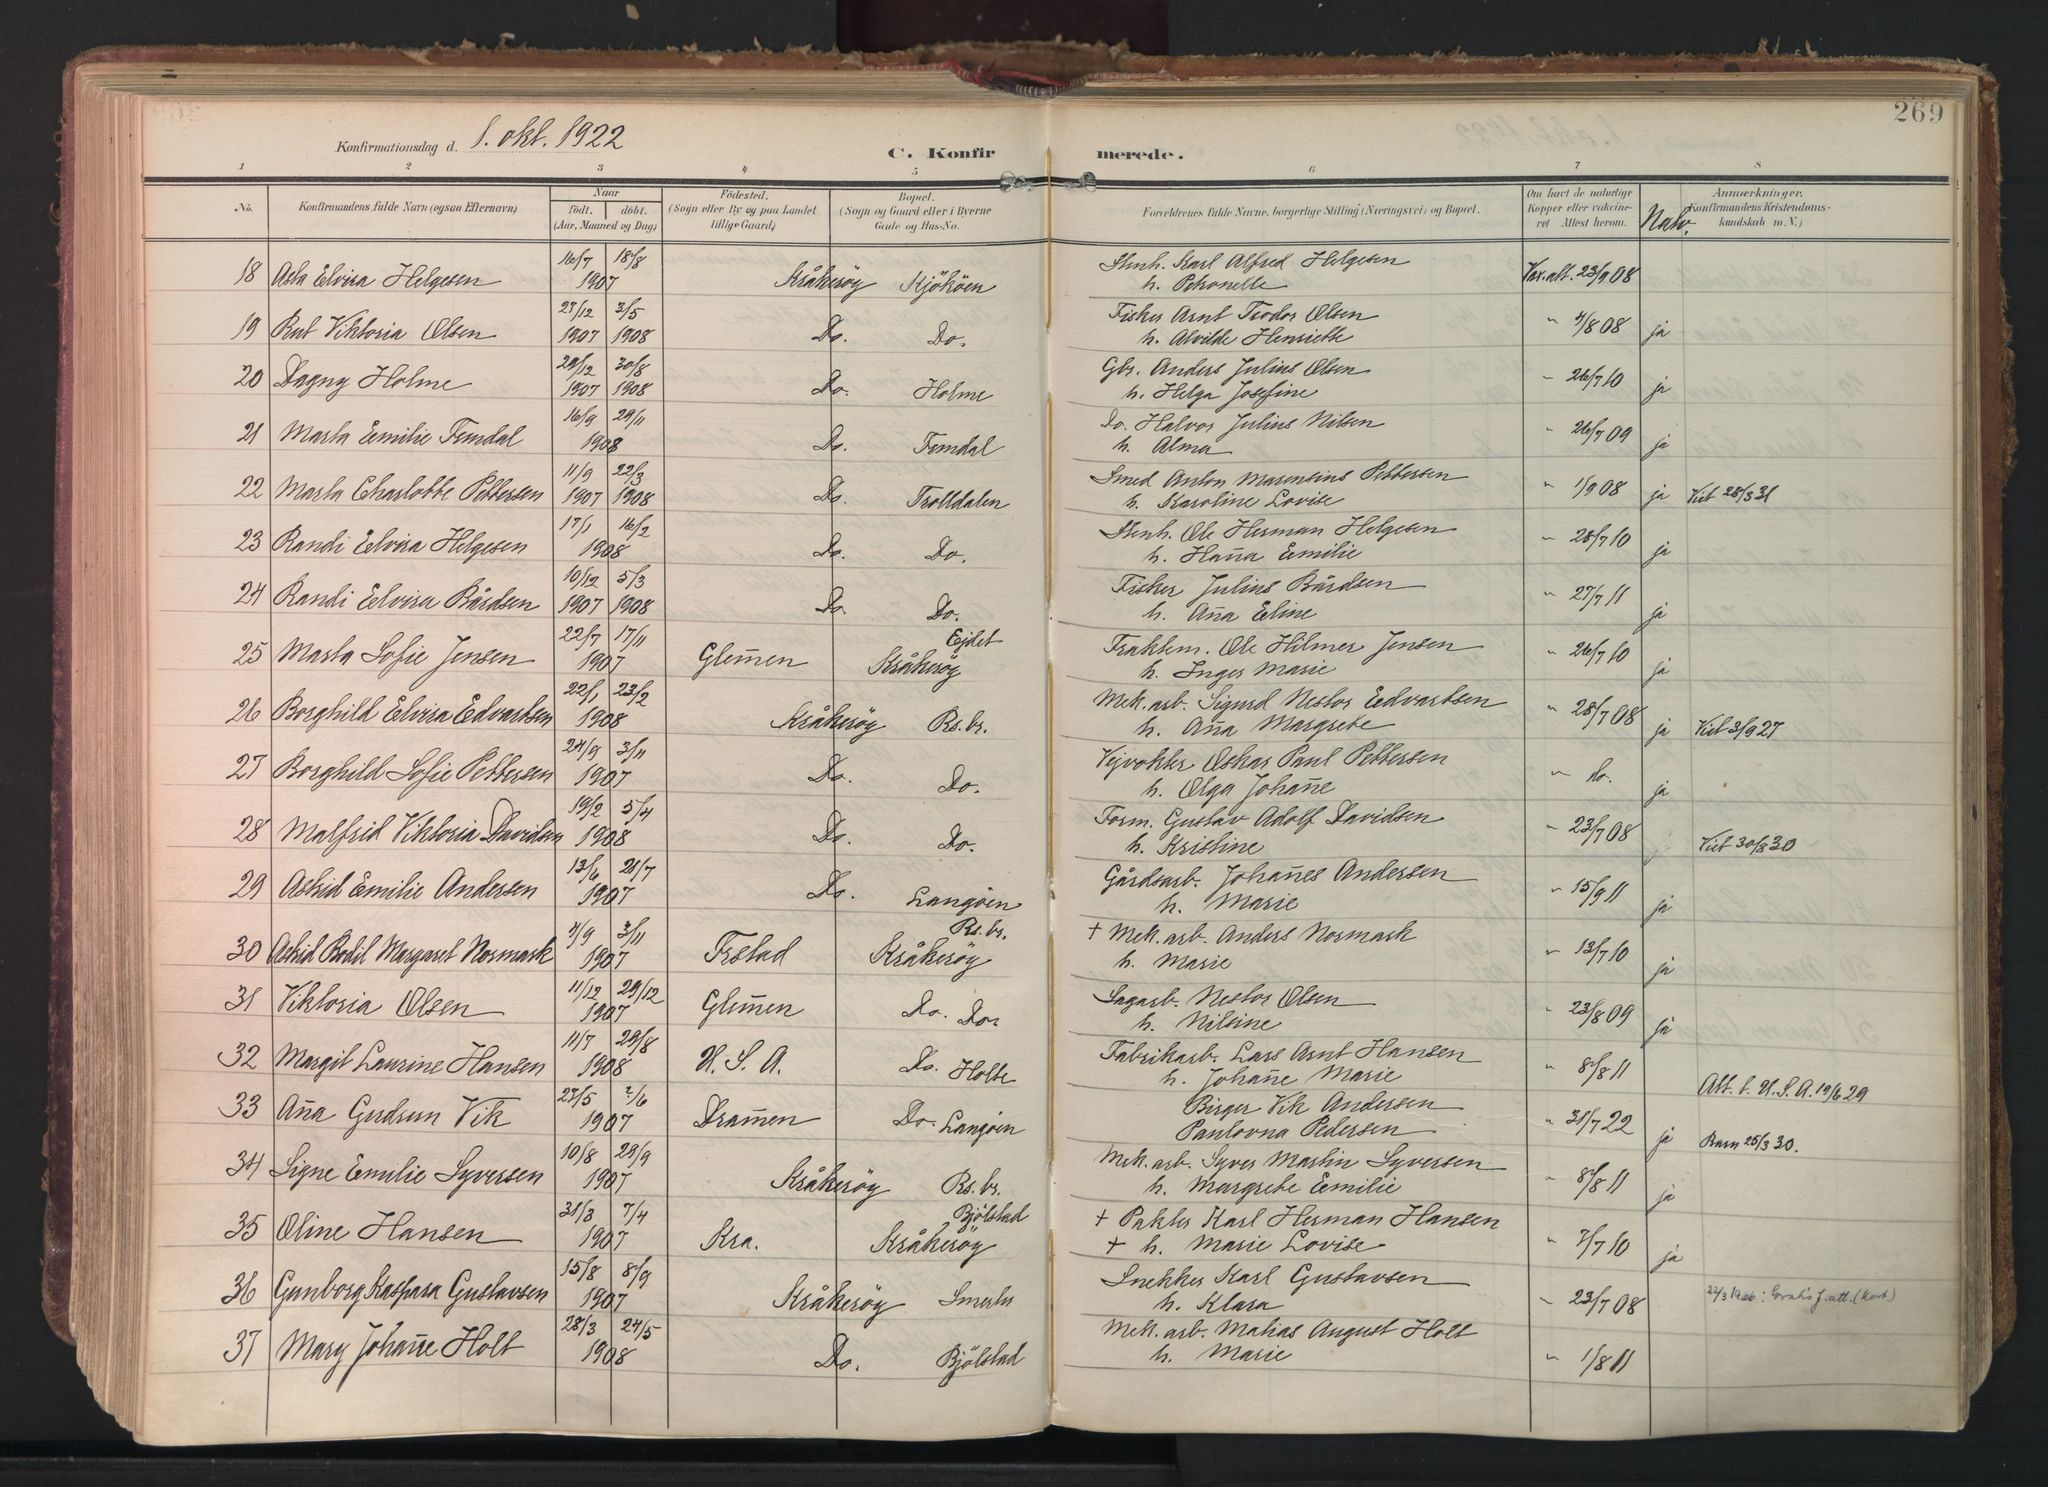 269
Konfirmationsdag d. 1. okt. 1922
C. Konfirmerede.
1 2 3 4 5 6 7 8
No. Konfirmandens fulde Navn (ogsaa Efternavn) Naar født. døbt. (Aar, Maaned og Dag) Fødested. (Sogn eller By og paa Landet tillige Gaard) Bopæl. (Sogn og Gaard eller i Byerne Gade og Hus-No. Forældrenes fulde Navne, borgerlige Stilling (Næringsvei) og Bopæl. Om havt de naturlige Kopper eller vakcineret Attest herom. Natv. Anmærkninger. (Konfirmandens Kristendomskundskab m. V.)
18 Asta Elvira Helgesen 16/7 18/8 1907 Kråkerøy Kjøkøen Stenh. Karl Alfred Helgesen Vax.att. 23/9 08
h. Petronelle
19 Rut Viktoria Olsen 27/12 1907 3/5 1908 Do. Do. Fisker Arnt Teodor Olsen " 4/8 08 ja
h. Alvilde Henriette
20 Dagny Holme 29/12 1907 30/8 1908 Do. Holme Gbr. Anders Julius Olsen " 26/7 10 ja
h. Helga Josefine
21 Marta Emilie Femdal 16/9 29/11 1908 Do. Femdal Do. Halvor Julius Nilsen " 26/7 09 ja
h. Alma
22 Marta Charlotte Pettersen 11/9 1907 22/3 1908 Do. Trolldalen Smed Anton Marensius Pettersen " 1/9 08 ja Viet 28/3 31
h. Karoline Lovise
23 Randi Elvira Helgesen 17/1 16/2 1908 Do. Do. Stenh. Ole Herman Helgesen " 28/7 10 ja
h. Han̄a Emilie
24 Randi Elvira Bårdsen 10/12 1907 5/3 1908 Do. Do. Fisker Julius Bårdsen " 27/7 11 ja
h. An̄a Eline
25 Marta Sofie Jensen 22/7 17/11 1907 Glem̄en Ejdet Kråkerøy Traktem. Ole Hilmer Jensen " 26/7 10 ja
h. Inger Marie
26 Borghild Elvira Edvartsen 22/1 23/2 1908 Kråkerøy Rs. br. Mek. arb. Sigurd Nestor Edvartsen " 28/7 08 ja Viet 3/9 27
h. An̄a Margrete
27 Borghild Sofie Pettersen 24/9 3/11 1907 Do. Do. Vejvokter Oskar Paul Pettersen " Do. ja
h. Olga Johan̄e
28 Malfrid Viktoria Davidsen 19/2 5/4 1908 Do. Do. Form. Gustav Adolf Davidsen " 23/7 08 Viet 30/8 30
h. Kristine
29 Astrid Emilie Andersen 13/6 21/7 1907 Do. Langøen Gårdsarb. Johan̄es Andersen " 15/9 11 ja
h. Marie
30 Astrid Bodil Margaret Normark 4/9 3/11 1907 Frstad Rs. br. Kråkerøy + Mek. arb. Anders Normark " 13/7 10 ja
h. Marie
31 Viktoria Olsen 11/12 29/12 1907 Glem̄en Do. Do. Sagarb. Nestor Olsen " 23/8 09 ja
h. Nilsine
32 Margit Laurine Hansen 11/7 29/8 1908 U. S. A. Do. Holte Fabrikarb. Lars Arnt Hansen " 8/8 11 Att. t. U. S. A. 19/6 29
h. Johan̄e Marie
33 An̄a Gudrun Vik 27/5 2/6 1907 Dram̄en Do. Langøen Birger Vik Andersen " 31/7 22 ja Barn 25/3 30.
Paulovna Pedersen
34 Signe Emilie Syversen 10/8 29/9 1907 Kråkerøy Rs. br. Mek. arb. Syver Martin Syversen " 8/8 11 ja
h. Margrete Emilie
35 Oline Hansen 31/3 7/4 1907 Kra. Bjølstad Kråkerøy + Pakter Karl Herman Hansen " 7/7 10 ja
+ h. Marie Lovise
36 Gunborg Kaspara Gustavsen 15/8 8/9 1907 Kråkerøy Smertu Snekker Karl Gustavsen " 23/7 08
h. Klara
37 Mary Johan̄e Holt 28/3 24/5 1908 Do. Bjølstad Mek. arb. Matias August Holt " 1/8 11
h. Marie